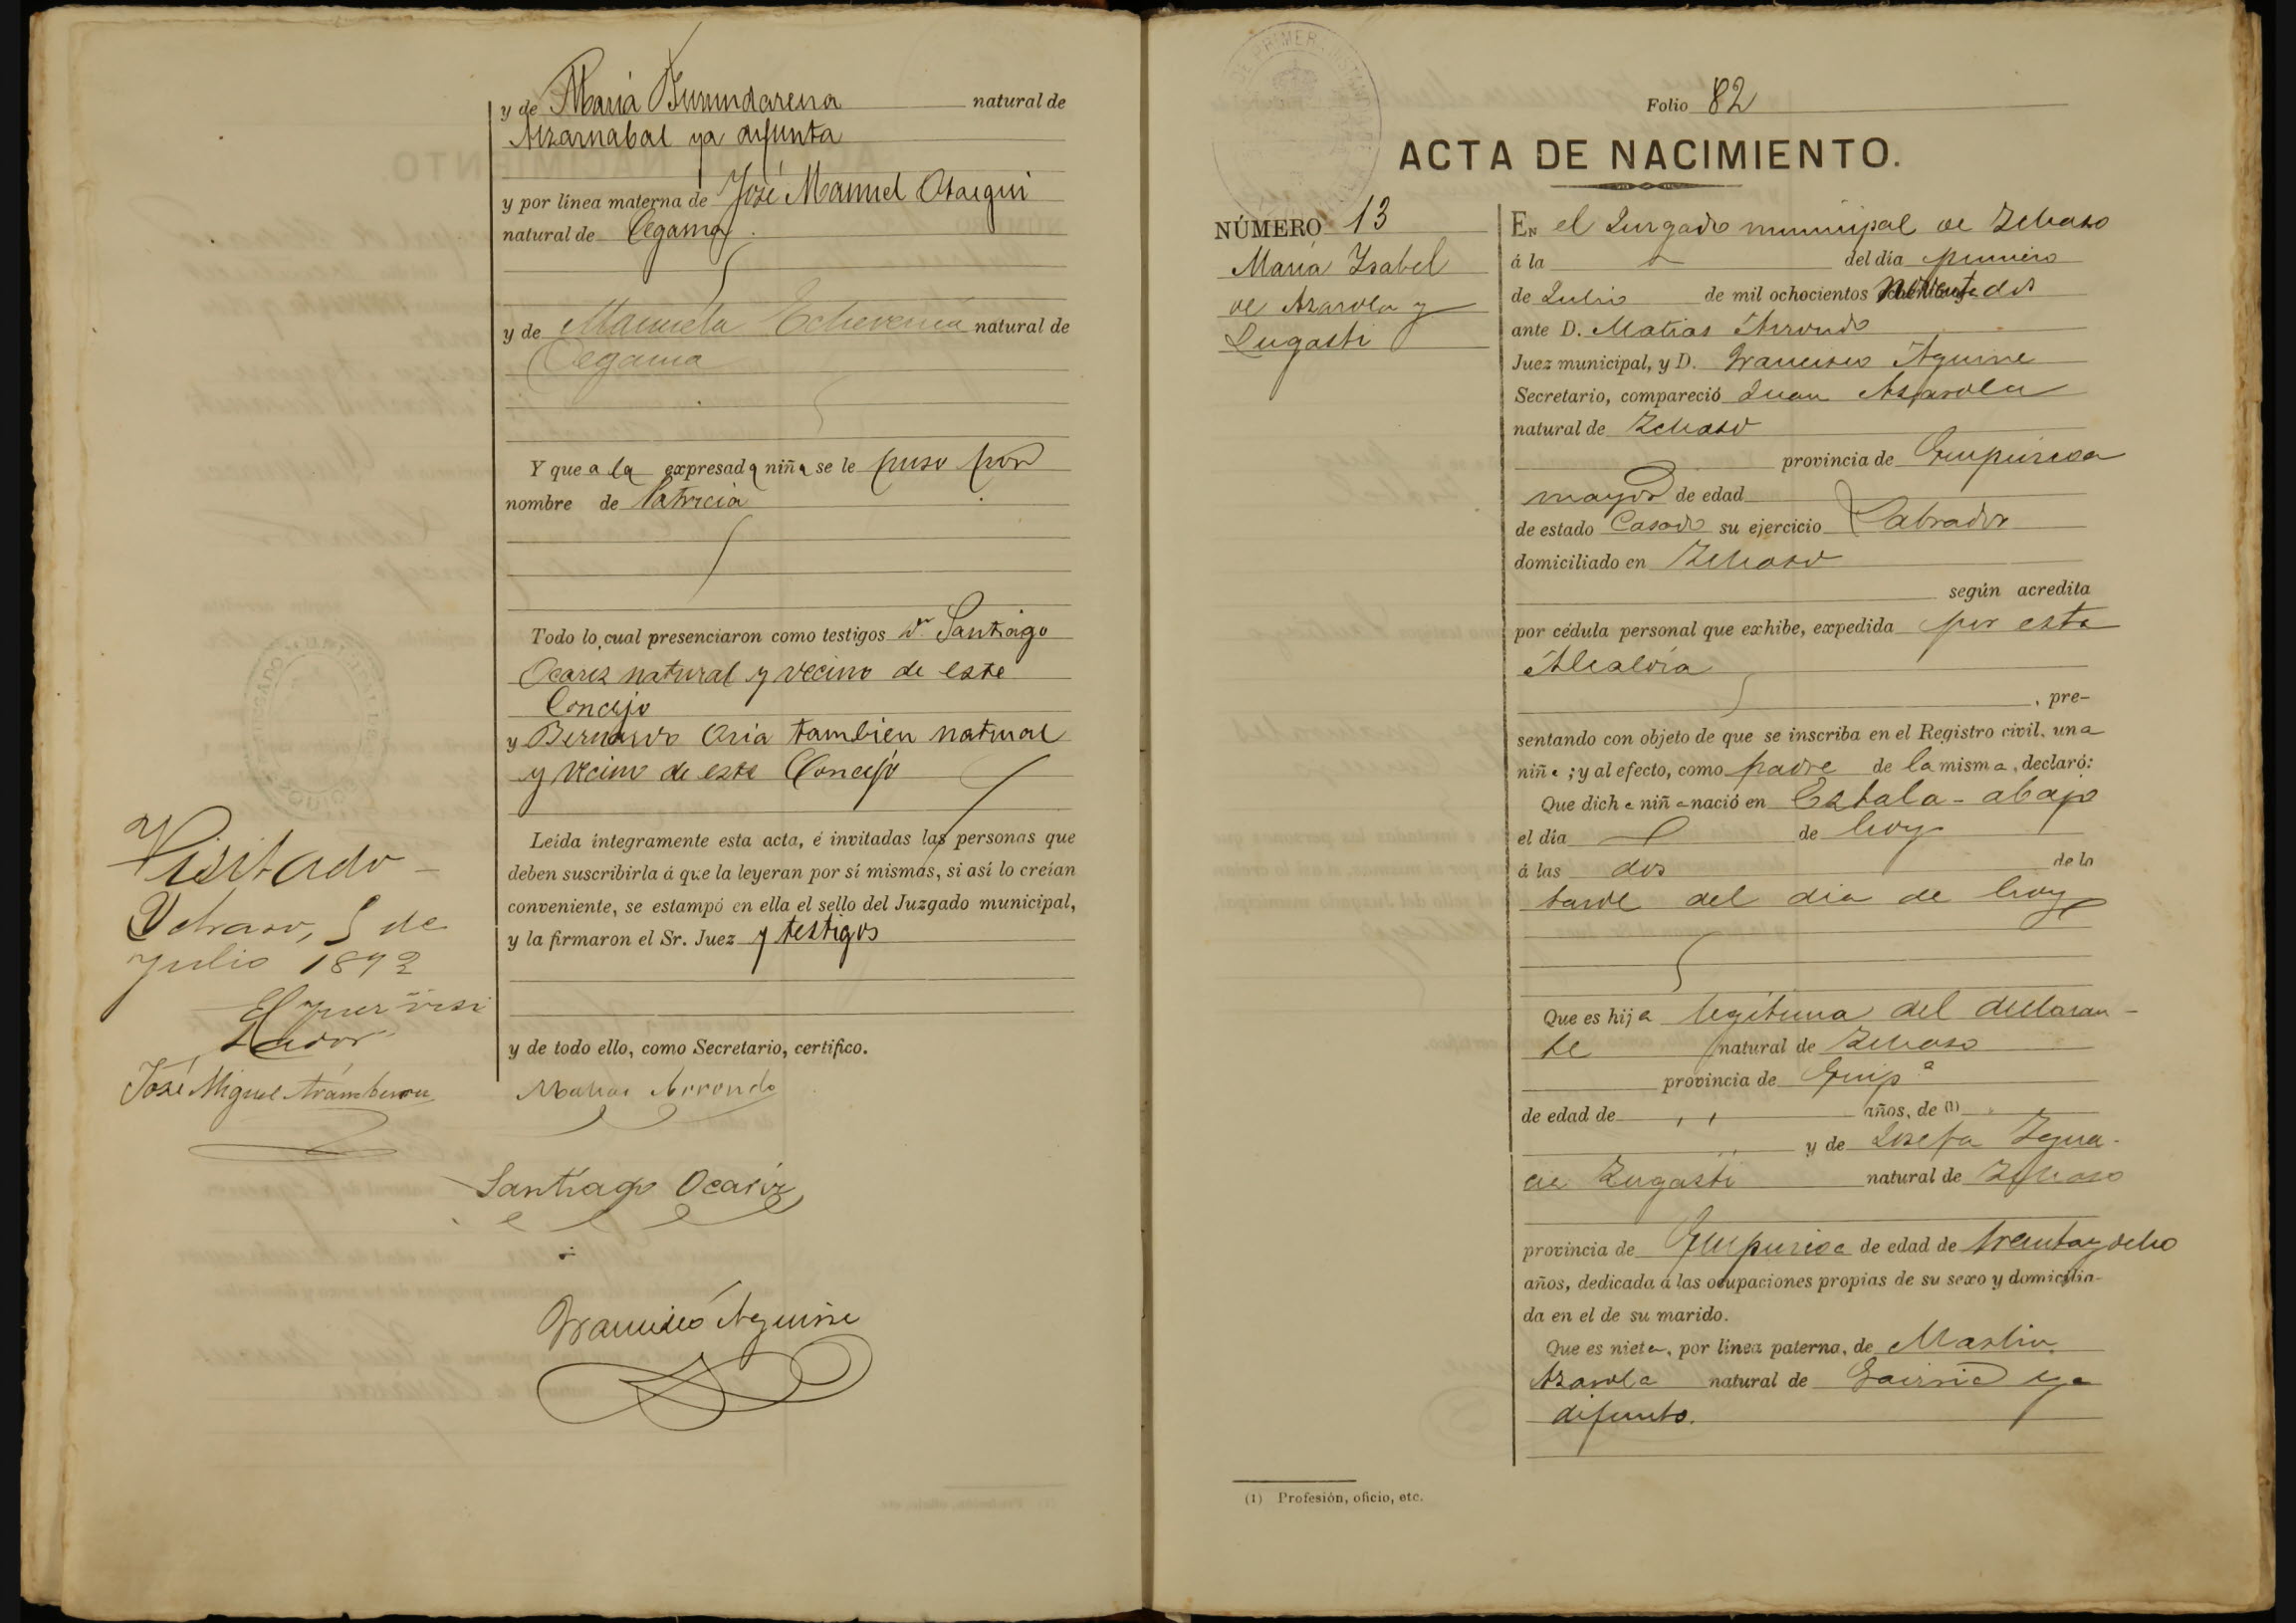 y de María Yurundarena natural de
Alzarnabal ya difunta
y por línea materna de José Manuel Otaegui
natural de Cegama.
y de Manuela Echeverria natural de
Cegama
Y que a la expresada niña se le puso por
nombre de Patricia
Todo lo cual presenciaron como testigos Dn Santiago
Ocariz natural y vecino de este
Concejo
y Bernardo Oria tambien natural
y vecino de este Concejo
Leída íntegramente esta acta, é invitadas las personas que
deben suscribirla á que la leyeran por sí mismas, si así lo creían
conveniente, se estampó en ella el sello del Juzgado municipal,
y la firmaron el Sr. Juez y testigos
y de todo ello, como Secretario, certifico.
Matias Arrondo
Santiago Ocariz
Francisco Aguirre
Visitado
Ychaso, 5 de
Julio 1892
El Juez visi
tador
José Miguel Aramburu
Folio 82
ACTA DE NACIMIENTO.
NÚMERO 13
María Ysabel
de Azarola y
Zugasti
EN el Juzgado municipal de Ychaso
á la del día primero
de Julio de mil ochocientos noventa y dos
ante D. Matias Arrondo
Juez municipal, y D. Francisco Aguirre
Secretario, compareció Juan Azarola
natural de Ychaso
provincia de Guipúzcoa
mayor de edad
de estado Casado su ejercicio Labrador
domiciliado en Ychaso
según acredita
por cédula personal que exhibe, expedida por esta
Alcaldía
, pre-
sentando con objeto de que se inscriba en el Registro civil, una
niña; y al efecto, como padre de la misma, declaró:
Que dicha niña nació en Estala-abajo
el día de hoy
á las dos de la
tarde del dia de hoy
Que es hija legítima del declaran-
te natural de Ychaso
provincia de Guipª
de edad de ,, años, de (1)
y de Josefa Ygna-
cia Zugasti natural de Ychaso
provincia de Guipúzcoa de edad de treinta y ocho
años, dedicada á las ocupaciones propias de su sexo y domicilia-
da en el de su marido.
Que es nieta, por línea paterna, de Martin
Azarola natural de Gaviria ya
difunto.
(1) Profesión, oficio, etc.